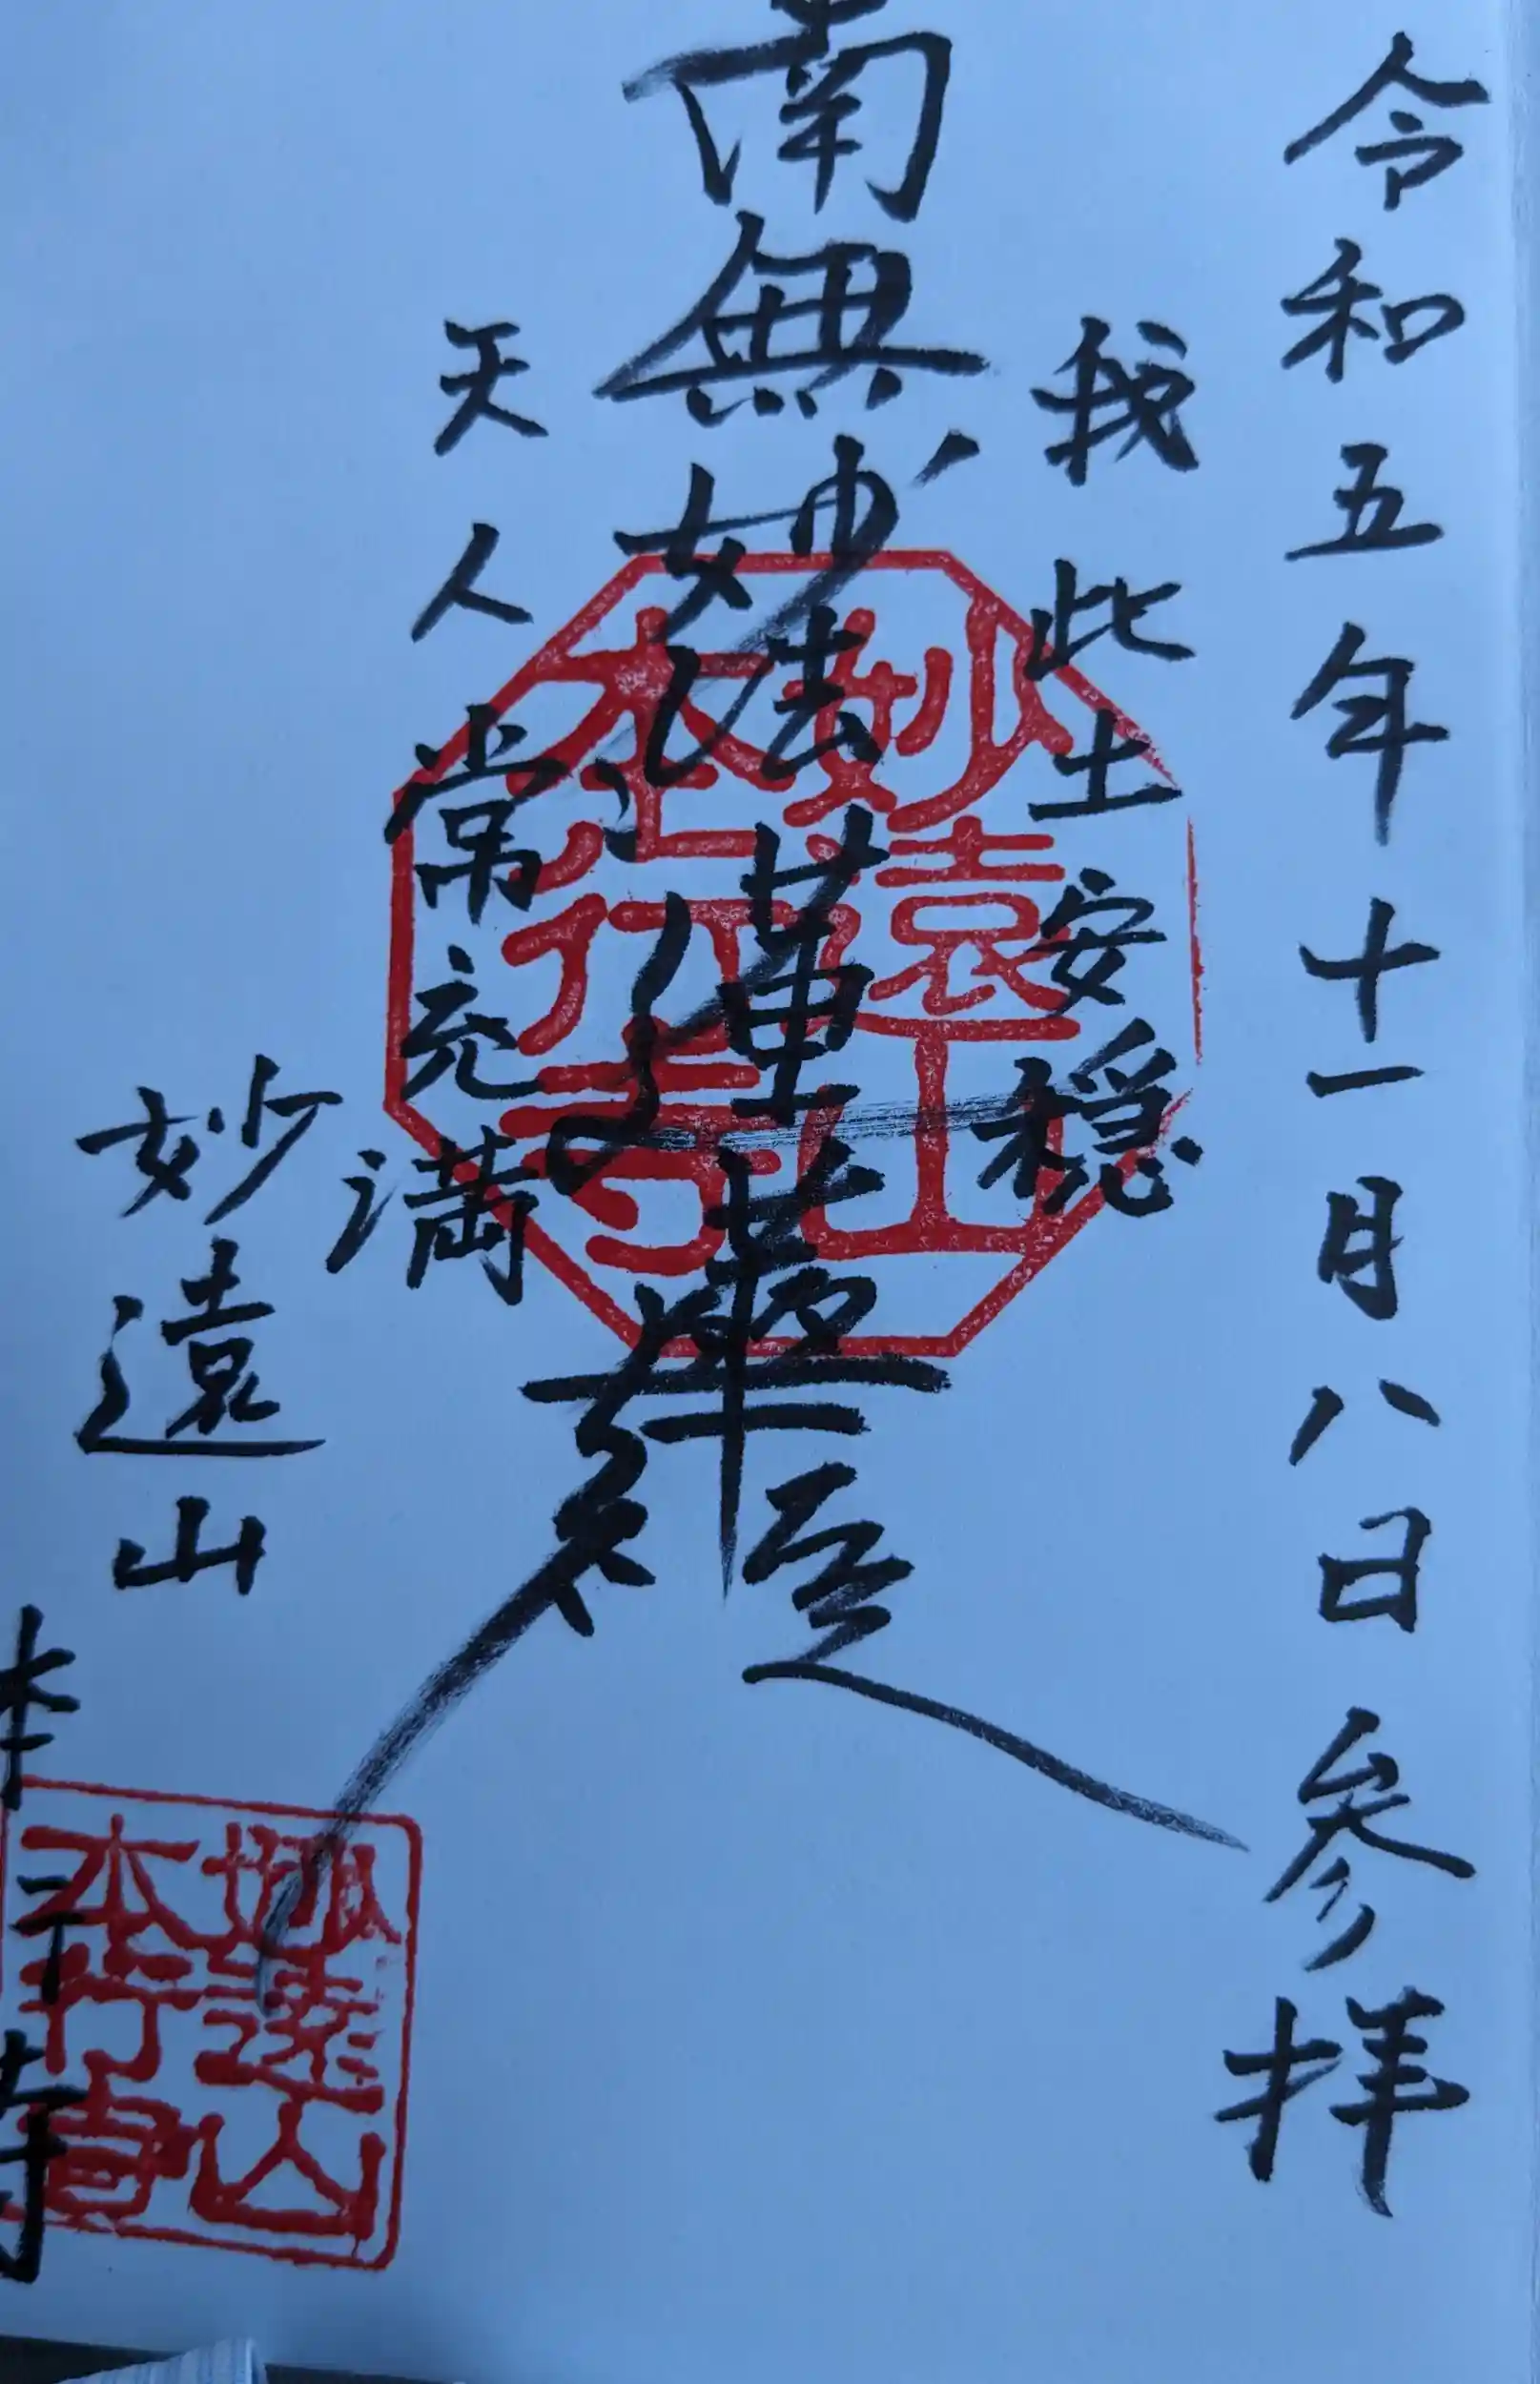 令和五年十一月八日参拝
我此土安穏
南無妙法蓮華経
天人常充満
妙遠山
本行寺
妙遠山
本行寺
妙遠山
本行寺